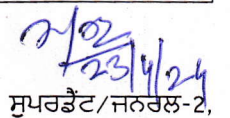 23/4/24
ਸੁਪਰਡੈਂਟ/ਜਨਰਲ-2,